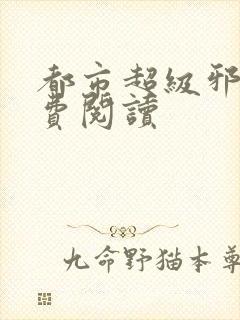 都市超级邪
費閱讀
九命野猫本尊